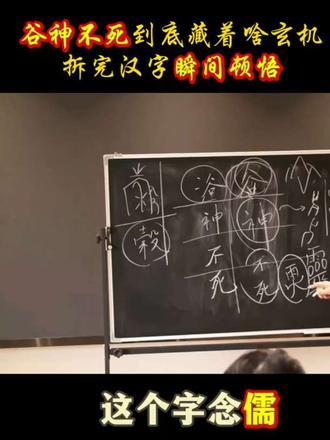 谷神不死到底藏着啥玄机
拆完汉字瞬间顿悟
浴 谷
神 神
不 不
死 死
这个字念儒